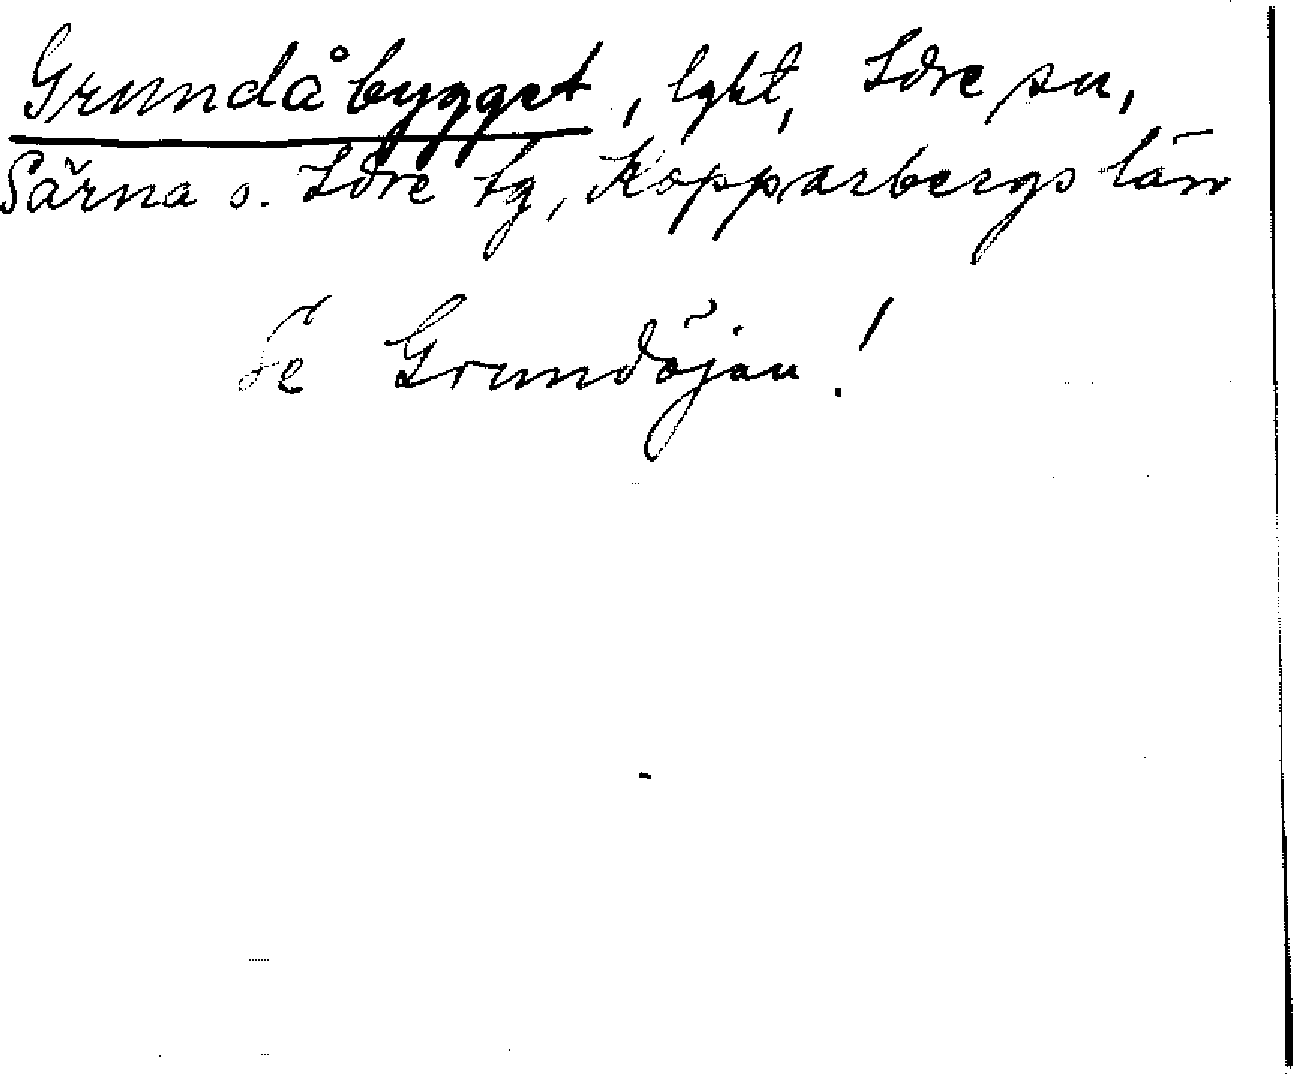 Grundåbygget, lght, Idre sn,
Särna o. Idre tg, Kopparbergs län
Se Grundöjan!